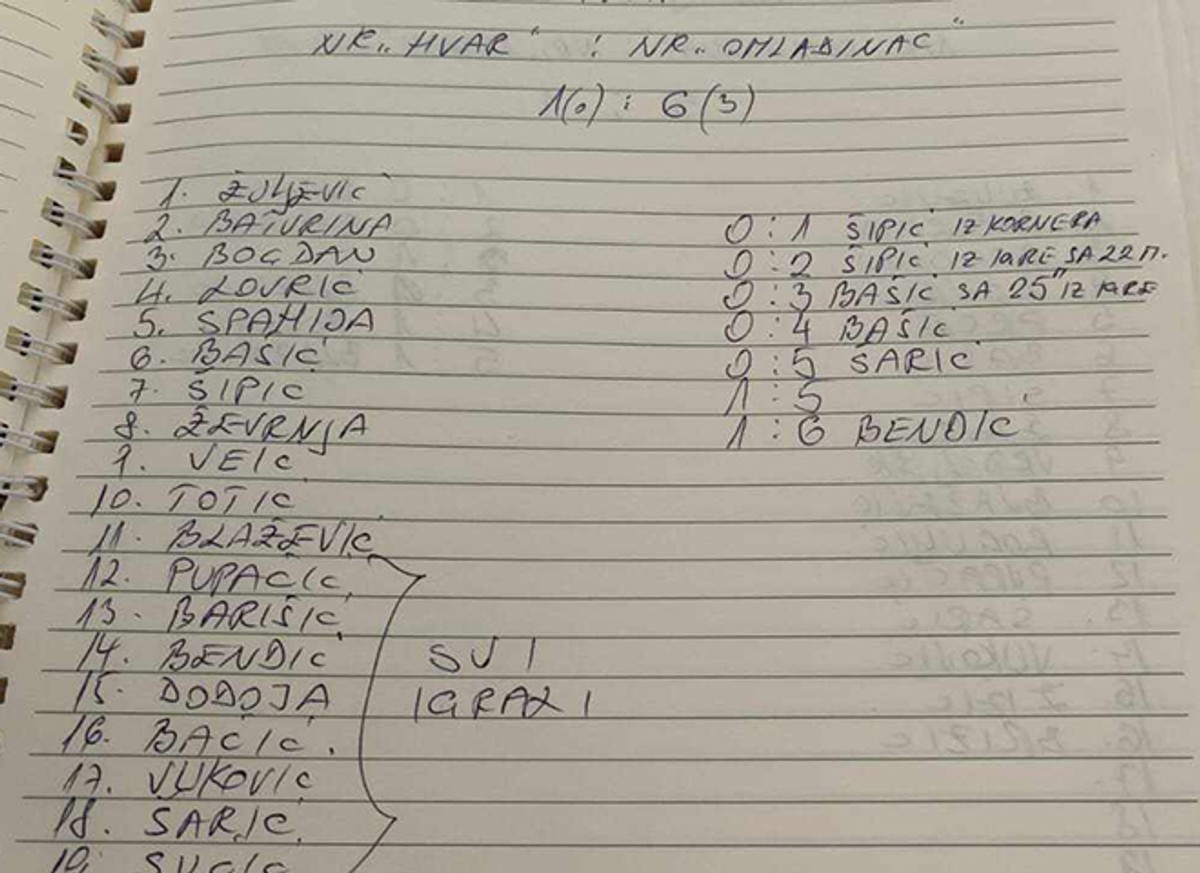 NK „HVAR" : NK „OMLADINAC"
1(0) : 6(3)
1. ŽULJEVIĆ
2. BATURINA
3. BOGDAN
4. LOVRIĆ
5. SPAHIJA
6. BAŠIĆ
7. ŠIPIĆ
8. ŽEVRNJA
9. VEIĆ
10. TOTIĆ
11. BLAŽEVIĆ
12. PUPAČIĆ
13. BARIŠIĆ
14. BENDIĆ
15. DODOJA
16. BAČIĆ
17. VUKOVIĆ
18. ŠARIĆ
19.
SVI
IGRALI
0:1 ŠIPIĆ IZ KORNERA
0:2 ŠIPIĆ IZ IGRE SA 22 M.
0:3 BAŠIĆ SA 25" IZ IGRE
0:4 BAŠIĆ
0:5 ŠARIĆ
1:5
1:6 BENDIĆ